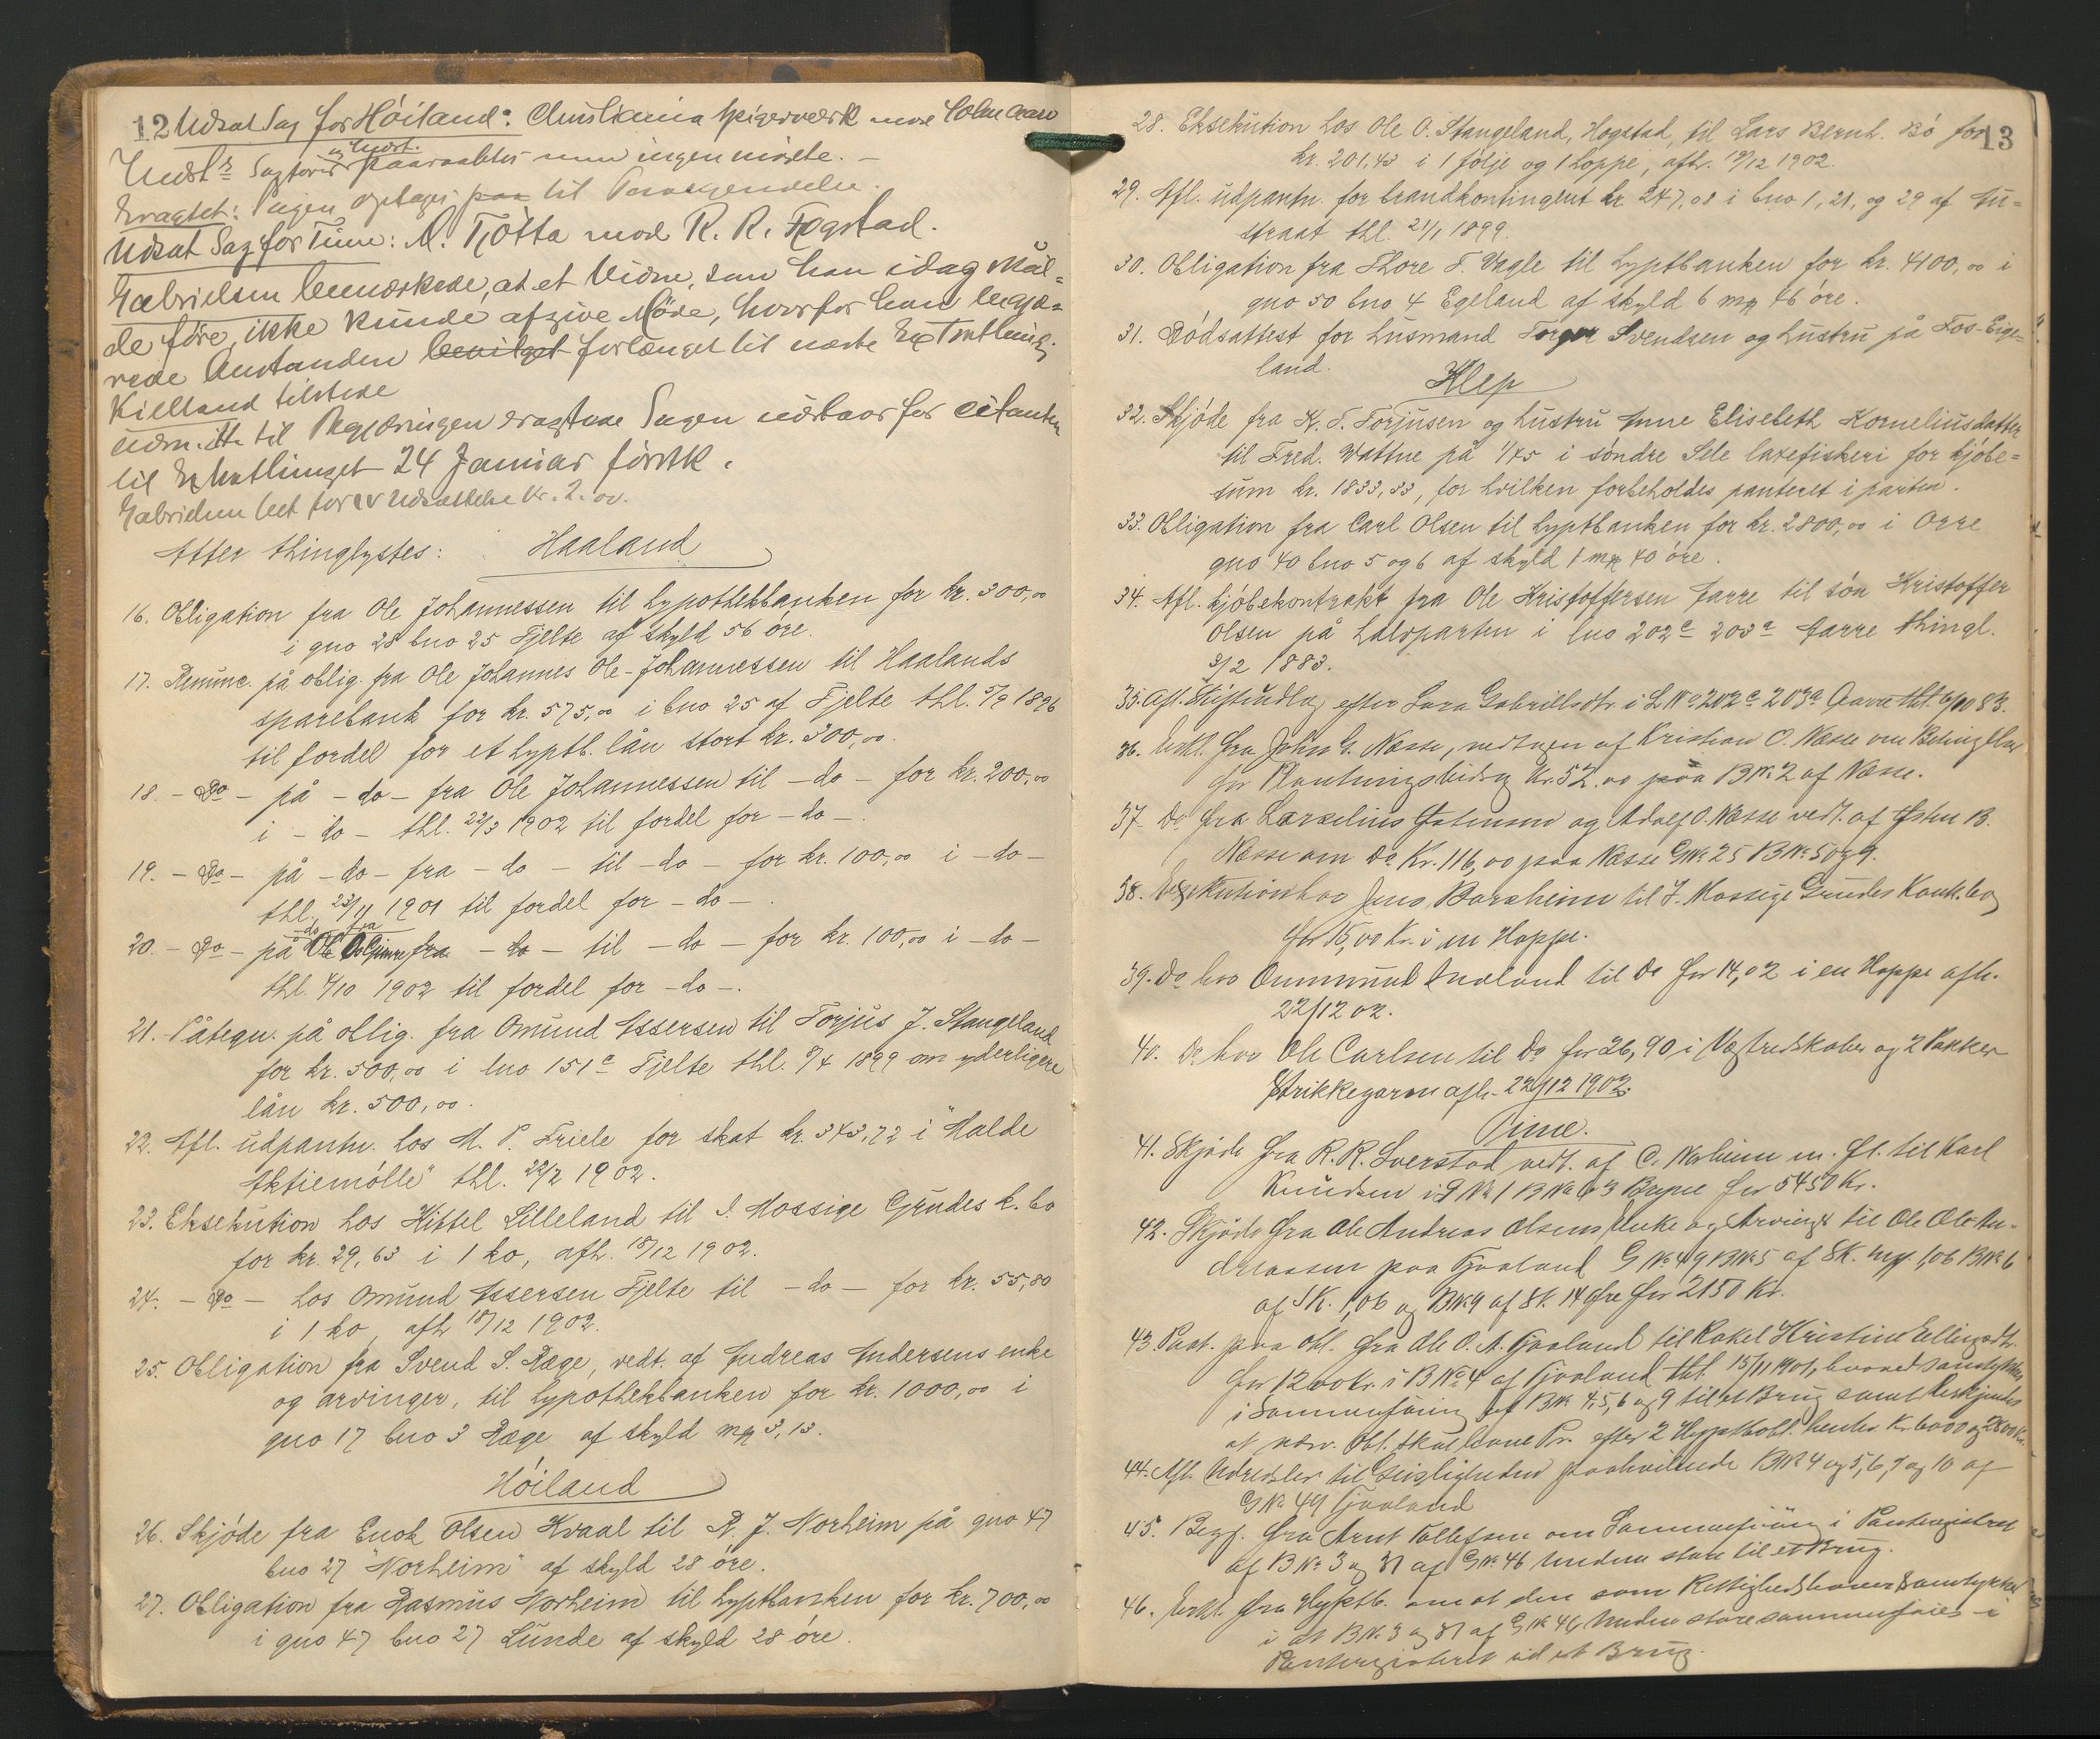 12 Udsat Sag for Höiland: Christiania Spigerværk mod
Sagfører paaraabtes men ingen mødte. –
Eragtet: Sagen optages paa til
Udsat Sag for Time: A. Tjötta mod R. R. Fogstad.
Gabrielsen bemærkede, at et Vidne, som han idag skul-
de føre, ikke kunde afgive Møde, hvorfor han begjæ-
rede Anstanden bevilget forlænget til næste Extrathing
Kielland tilstede
til Begjæringen eragtede Sagen udsat for citanten
til Extrathinget 24 Januar förstk.
Gabrielsen bet for ev Udsættelse Kr. 2.00.
Atter thinglystes: Haaland
16. Obligation fra Ole Johannessen til hypothekbanken for kr. 300,00
i gno 28 bno 25 Fjelte af skyld 56 öre.
17. Renunc. på oblig. fra Ole Johannes Ole-Johannessen til Haalands
sparebank for kr. 575,00 i bno 25 af Fjelte thl. 5/9 1896
til fordel for et hyptb. lån stort kr. 300,00.
18. – Do – på – do – fra Ole Johannessen til – do – for kr. 200,00
i – do – thl. 22/3 1902 til fordel for – do –.
19. – Do – på – do – fra – do – til – do – for kr. 100,00 i – do –
thl. 23/11 1901 til fordel for – do –.
20. – Do – på – do – fra – do – til – do – for kr. 100,00 i – do –
thl. 4/10 1902 til fordel for – do –.
21. Påtegn. på oblig. fra Omund Assersen til Torjus J. Stangeland
for kr. 500,00 i lno 151c Fjelte thl. 9/4 1899 om yderligere
lån kr. 500,00.
22. Afl. udpantn. hos M. P. Friele for skat kr. 343,72 i "Malde
Aktiemölle" thl. 22/2 1902.
23. Eksekution hos Kittel Lilleland til I. Mossige Grudes k. bo
for kr. 29,63 i 1 ko, afh. 18/12 1902.
24. – Do – hos Omund Assersen Fjelte til – do – for kr. 55,80
i 1 ko, afh 18/12 1902.
25. Obligation fra Svend S. Ræge, vedt. af Andreas Andersens enke
og arvinger, til hypothekbanken for kr. 1000,00 i
gno 17 bno 3 Ræge af skyld mrk 3,13.
Höiland
26. Skjöde fra Enok Olsen Kvaal til R. J. Norheim på gno 47
bno 27 "Norheim" af skyld 28 öre.
27. Obligation fra Rasmus Norheim til hyptbanken for kr. 700,00
i gno 47 bno 27 Lunde af skyld 28 öre.
13
28. Eksekution hos Ole O. Stangeland, Hogstad, til Lars Bernt. Bö for
kr. 201,43 i 1 följe og 1 hoppe, afh. 19/12 1902.
29. Afl. udpantn. for brandkontingent kr 247,08 i bno 1, 21, og 29 af Au-
straat thl. 21/1 1899.
30. Obligation fra Thore T. Vagle til hyptbanken for kr. 4100,00 i
gno 50 bno 4 Egeland af skyld 6 mrk 46 öre.
31. Dödsattest for husmand Torger Svendsen og hustru på Fos-Eige-
land.
Klep
32. Skjöde fra K. T. Torjusen og hustru Anne Elisebeth Korneliusdatter
til Fred. Wattne på 1/45 i söndre Sele laxefiskeri for kjöbe-
sum kr. 1833,33, for hvilken forbeholdes panteret i parten.
33. Obligation fra Carl Olsen til hyptbanken for kr. 2800,00 i Orre
gno 40 bno 5 og 6 af skyld 1 mrk 40 öre.
34. Afl. kjöbekontrakt fra Ole Kristoffersen Garre til sön Kristoffer
Olsen på halvparten i lno 202c 203a Garre thingl.
3/2 1883.
35. Afl. Skifteudlæg efter Sara Gabrielsdtr. i L No 202c 203a Garre thl. 6/10 83.
36. Erkl. fra John G. Næsse, vedtagen af Kristian O. Næsse om
for Plantningsbidrag Kr. 52.00 paa B No 2 af Næsse.
37. Do fra og Adolf O. Næsse vedt. af Østen B.
Næsse om Do Kr. 116,00 paa Næsse G No 25 B No 5 og 9.
38. Eksekution hos Jens Barsheim til I. Mossige Grudes Konk.bo
for 15,00 Kr. i en Hoppe.
39. Do hos Ommund til Do for 14,02 i en Hoppe afh.
22/12 02.
40. Do hos Ole Carlsen til Do for 26,90 i og 2 Pakker
Strikkegarn afh. 22/12 1902.
Time.
41. Skjöde fra R. R. vedt. af O. m. fl. til Karl
Knudsen i G No 1 B No 63 Bryne for 5450 Kr.
42. Skjöde fra Ole Andreas Olsens Enke og Arvinger til Ole Ole An-
dreassen paa Tjaaland G No 49 B No 5 af Sk. mrk 1,06 B No 6
af Sk. 1,06 og B No 9 af Sk. 14 Øre for 2150 Kr.
43 Paat. paa Obl. fra Ole O. A. Tjaaland til Rakel Kristine Ellingsdtr.
for 1200 kr. i B No 4 af Tjaaland thl. 15/11 1901, hvorved samtykkes
i Sammenföining af B No 4, 5, 6 og 9 til et Brug samt
at nærv. Obl. skal have Pr. efter 2 Hypthobl. Kr. 6000 og 2800 Kr.
44. Afl. til Geistligheden paahvilende B No 4 og 5, 6, 9 og 10 af
G No 49 Tjaaland
45. Begj. fra Arnt Tollefsen om Sammenföining i Panteregistret
af B No 3 og 31 af G No 46 Undem store til et Brug.
46. Erkl. fra Hyptb. om at den som Rettighedshaver samtykker
i at B No 3 og 31 af G No 46 Undem store sammenföies i
Panteregisteret til et Brug.